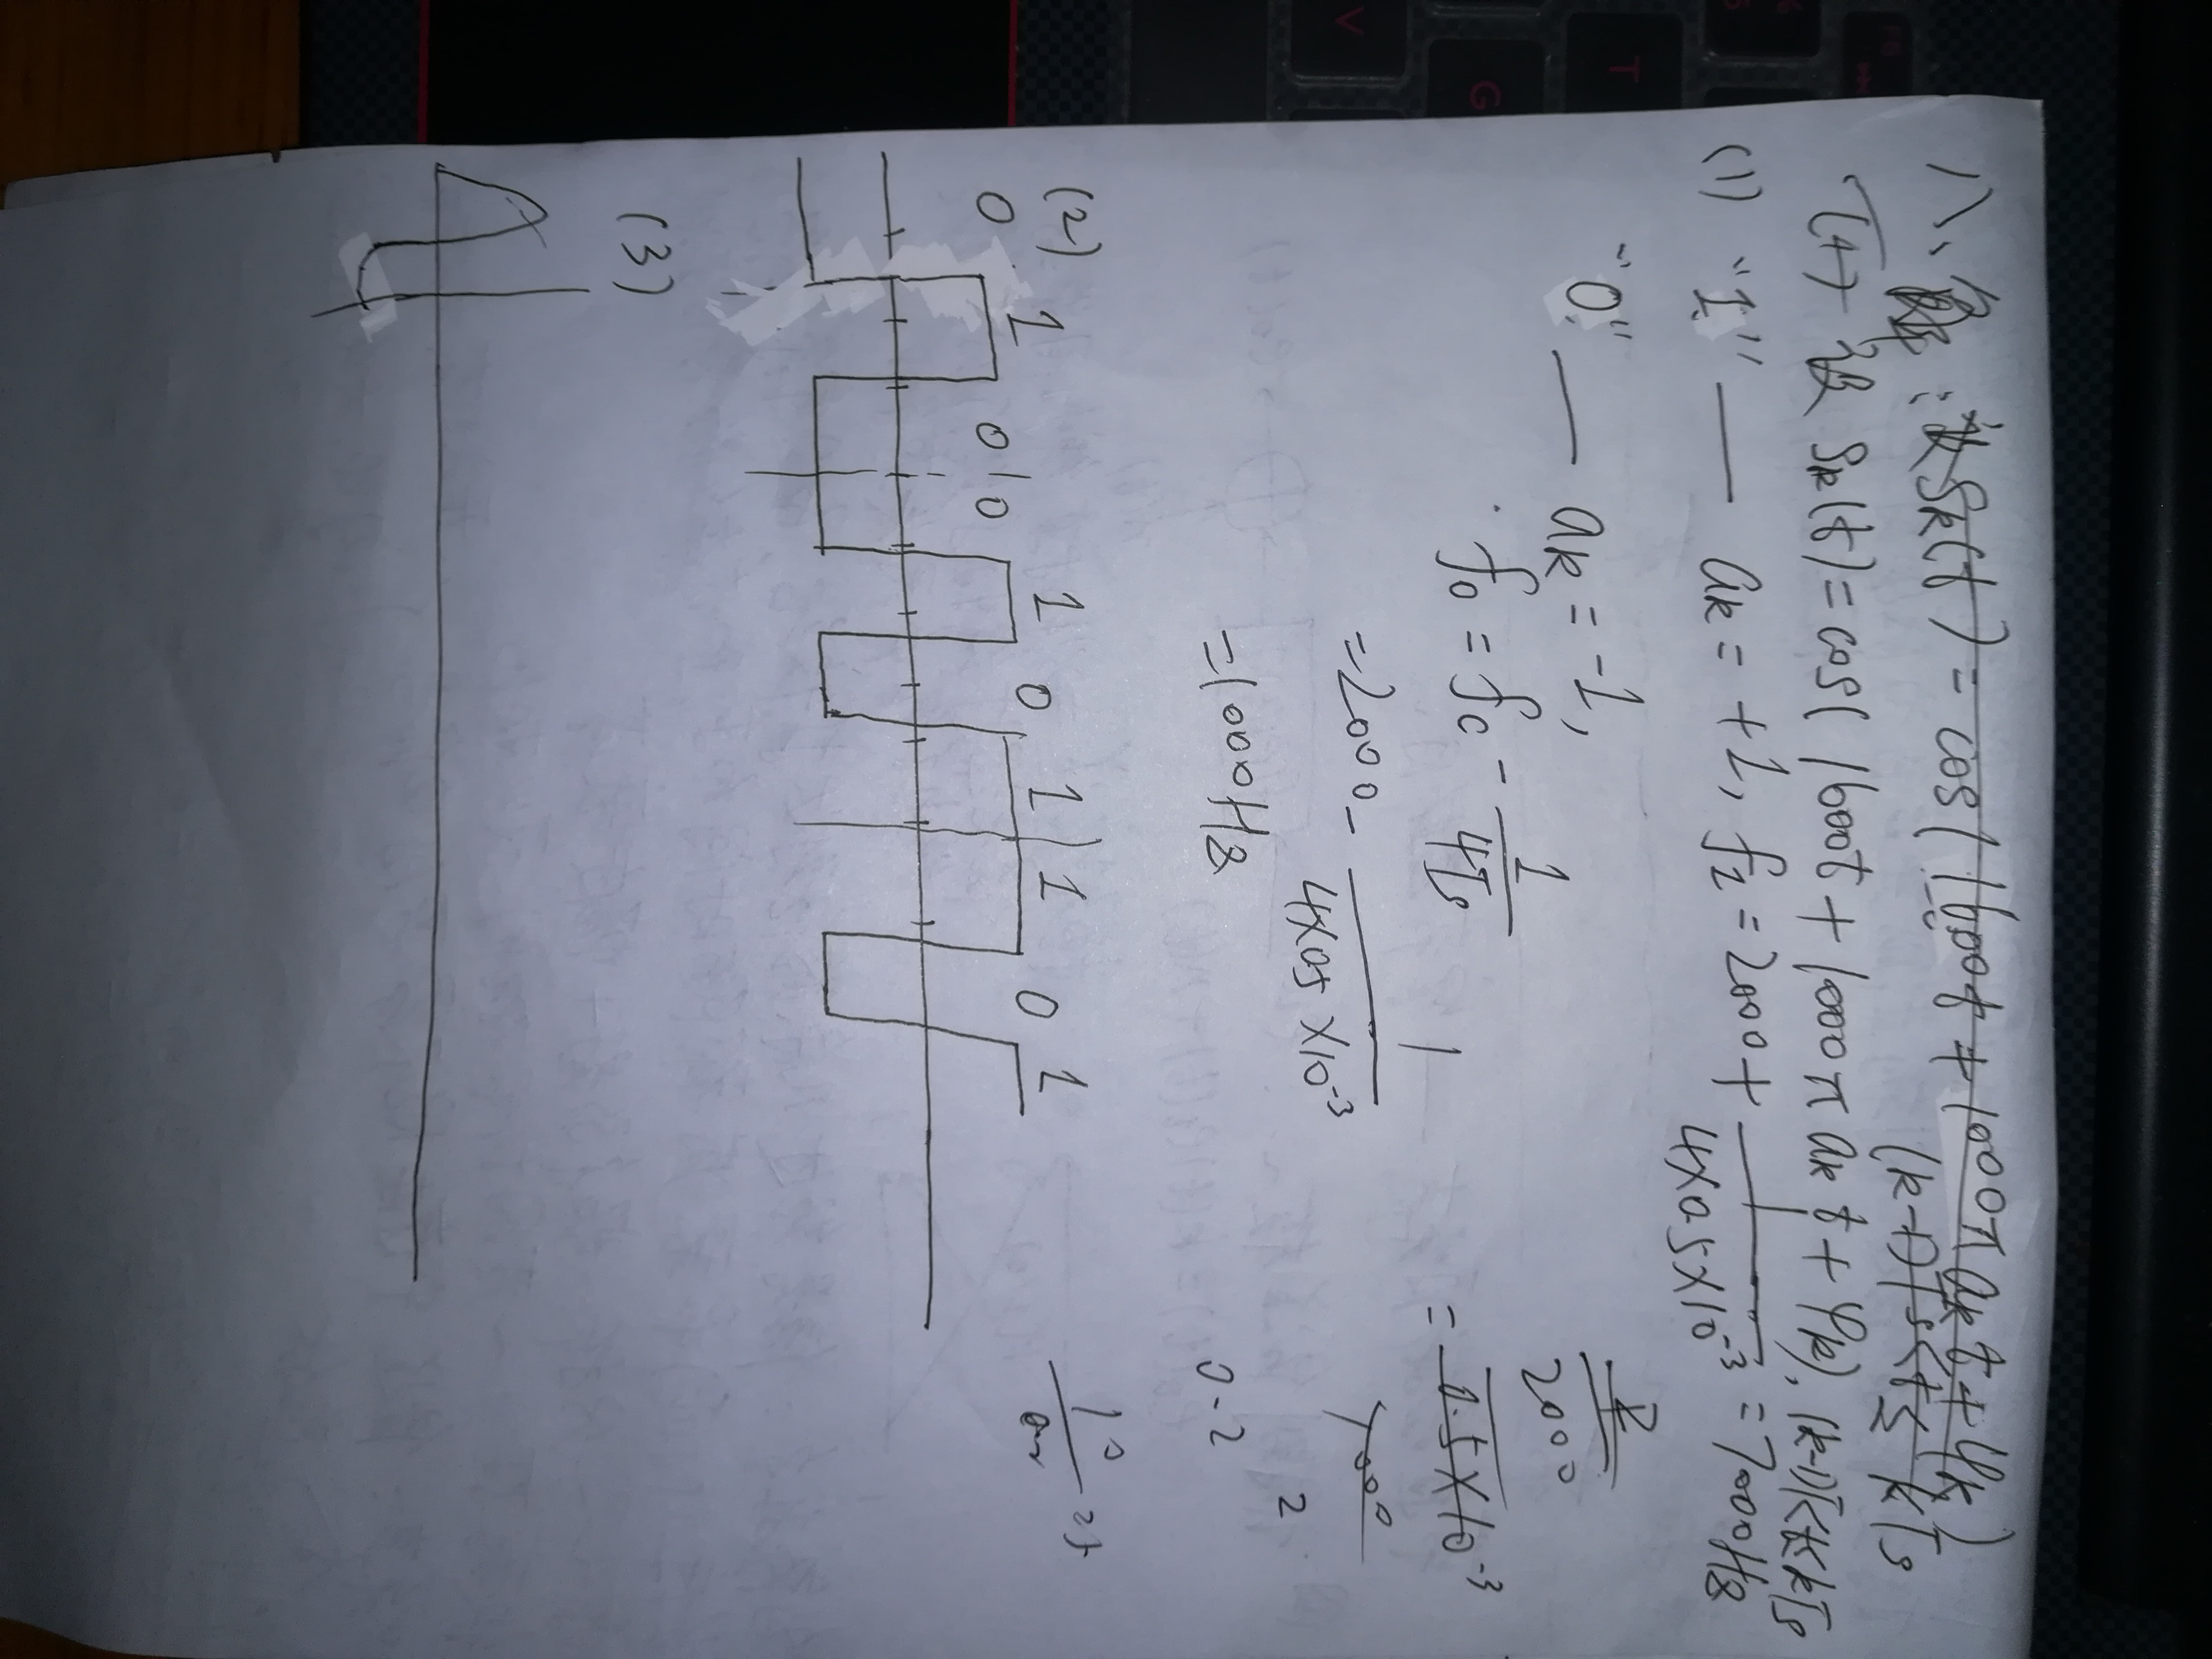 八、解:设Sk(t)=cos(1600t+1000π ak t+φk)
(k-1)Ts<t≤kTs
(1) 设 Sk(t)=cos(1600t+1000π ak t+φk), (k-1)Ts<t≤kTs
(1) "1" — ak=+1, f1=2000+1/(4×0.5×10^-3)=7000Hz
"0" — ak=-1,
f0=fc-1/(4Ts)
=2000-1/(4×05×10^-3)
=1000Hz
2000
=0.5×10^-3
7000
2
0.2
10
(2)
0 1 0 0 1 0 1 1 0 1
(3)
T
G
V